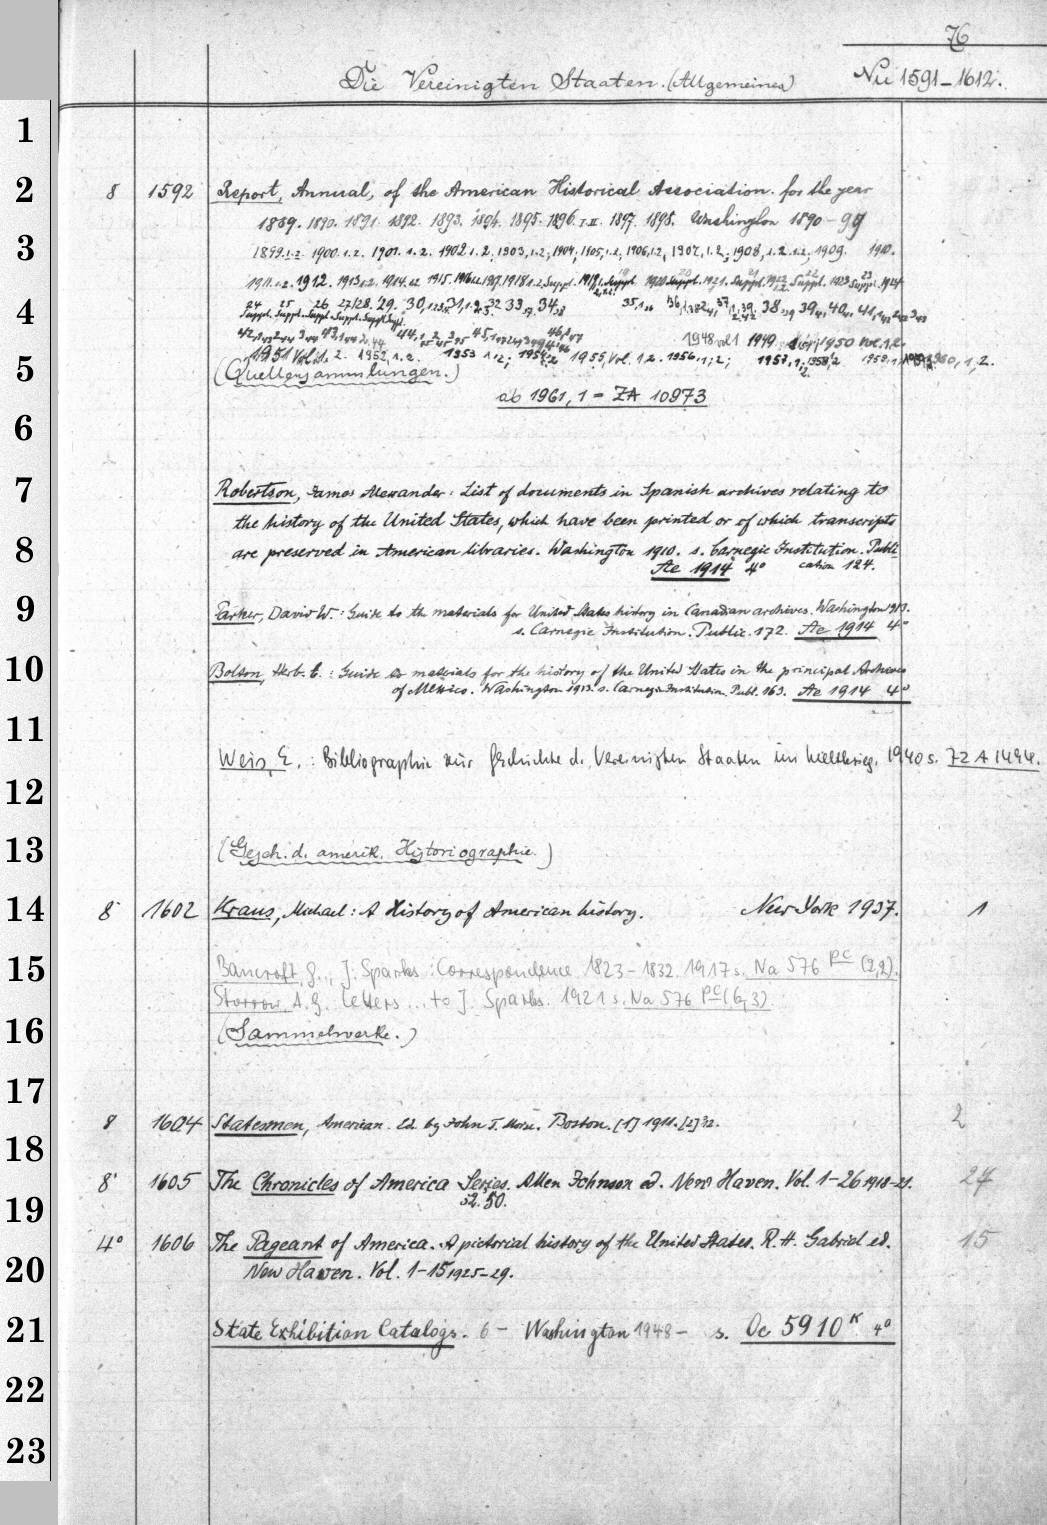 76
Die Vereinigten Staaten. (Allgemeines)
Nu 1591-1612.
1
2
8 1592 Report, Annual, of the American Historical Association. for the year
1889. 1890. 1891. 1892. 1893. 1894. 1895. 1896. I-II. 1897. 1898. Washington 1890-99
3
1899.1.2. 1900.1.2. 1901.1.2. 1902.1.2. 1903,1.2; 1904; 1905,1.2; 1906,1.2, 1907,1.2; 1908,1.2.1.2; 1909. 1910.
1911.1.2. 1912. 1913.1.2. 1914.1.2. 1915.
4
29. 30, 33, 34 38 39 40 41
1948 vol 1 1949 1950 vol. 1.2.
1951 Vol. 1. 2. 1952, 1. 2. 1953 1.2; 1954,1.2 1955, Vol. 1.2. 1956.1; 2; 1957, 1.; 1958,1.2 1960, 1, 2.
5
(Quellensammlungen.)
ab 1961, 1 = ZA 10973
6
7
Robertson, James Alexander: List of documents in Spanish archives relating to
the history of the United States, which have been printed or of which transcripts
8
are preserved in American libraries. Washington 1910. s. Carnegie Institution. Publi
cation 124.
Ae 1914 4°
9
Parker, David W.: Guide to the materials for United States history in Canadian archives. Washington 1913.
s. Carnegie Institution. Public. 172. Ae 1914 4°
10
Bolton, Herb. E.: Guide to materials for the history of the United States in the principal Archives
of Mexico. Washington 1913. s. Carnegie Institution. Publ. 163. Ae 1914 4°
11
Weis, E.: Bibliographie zur Geschichte d. Vereinigten Staaten im Weltkrieg. 1940 s. 72 A 1494.
12
13
(Gesch. d. amerik. Historiographie.)
14
8° 1602 Kraus, Michael: A History of American history. New York 1937. 1
15
Bancroft, G., J. Sparks: Correspondence 1823-1832. 1917 s. Na 576 pc (2,2).
Storrow, A. G. Letters ... to J. Sparks. 1921 s. Na 576 pc (6,3)
16
(Sammelwerke.)
17
8 1604 Statesmen, American. Ed. by John T. Morse. Boston. [1] 1911. [2] 32. 2
18
8° 1605 The Chronicles of America Series. Allen Johnson ed. New Haven. Vol. 1-26 1918-21. 27
52. 50.
19
4° 1606 The Pageant of America. A pictorial history of the United States. R. H. Gabriel ed. 15
20
New Haven. Vol. 1-15 1925-29.
21
State Exhibition Catalogs. 6 - Washington 1948 - s. Oc 5910 K 4°
22
23